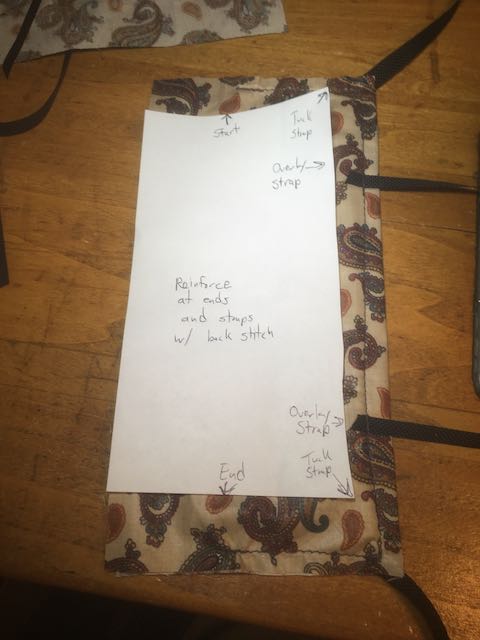 Start
Tuck
strap
Overlay
strap
Reinforce
at ends
and straps
w/ back stitch
Overlay
Strap
End
Tuck
strap